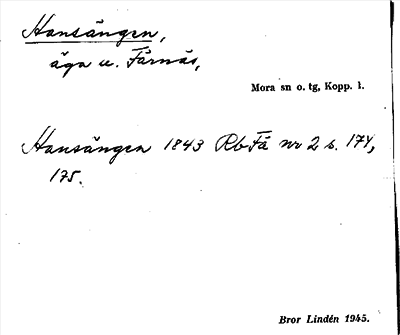 Hansängen,
äga u. Färnäs,
Mora sn o. tg, Kopp. l.
Hansängen 1843 Rb Fä nr 2 s. 174,
175.
Bror Lindén 1945.